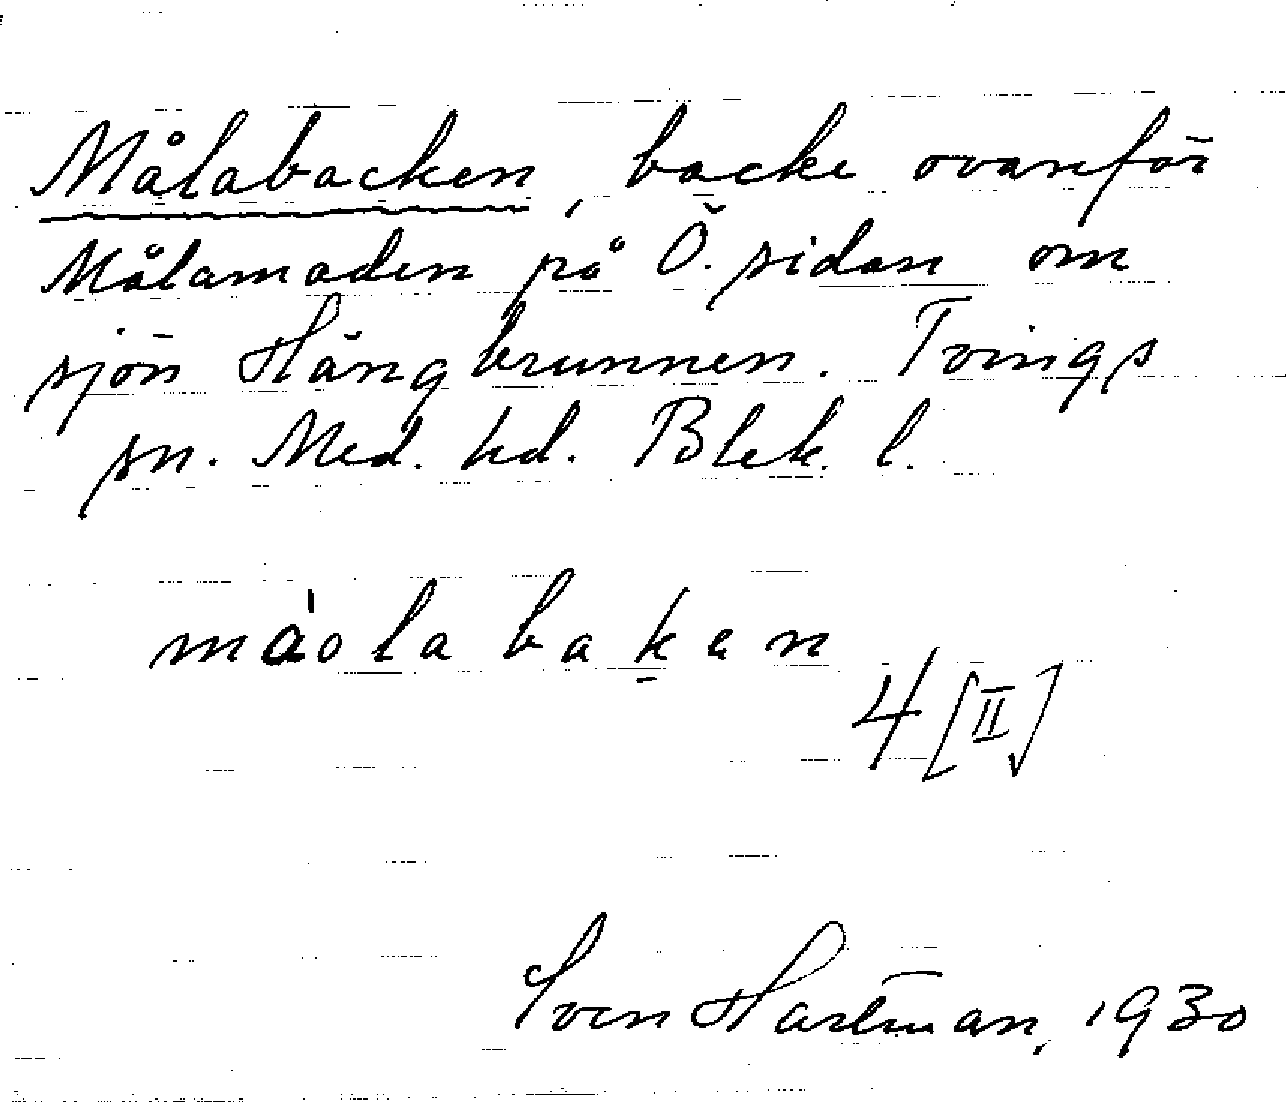 Målabacken, backe ovanför
Målamaden på Ö. sidan om
sjön Hängbrunnen. Tvings
sn. Med. hd. Blek. l.
måola bakan
4 [II]
Sven Hartman, 1930